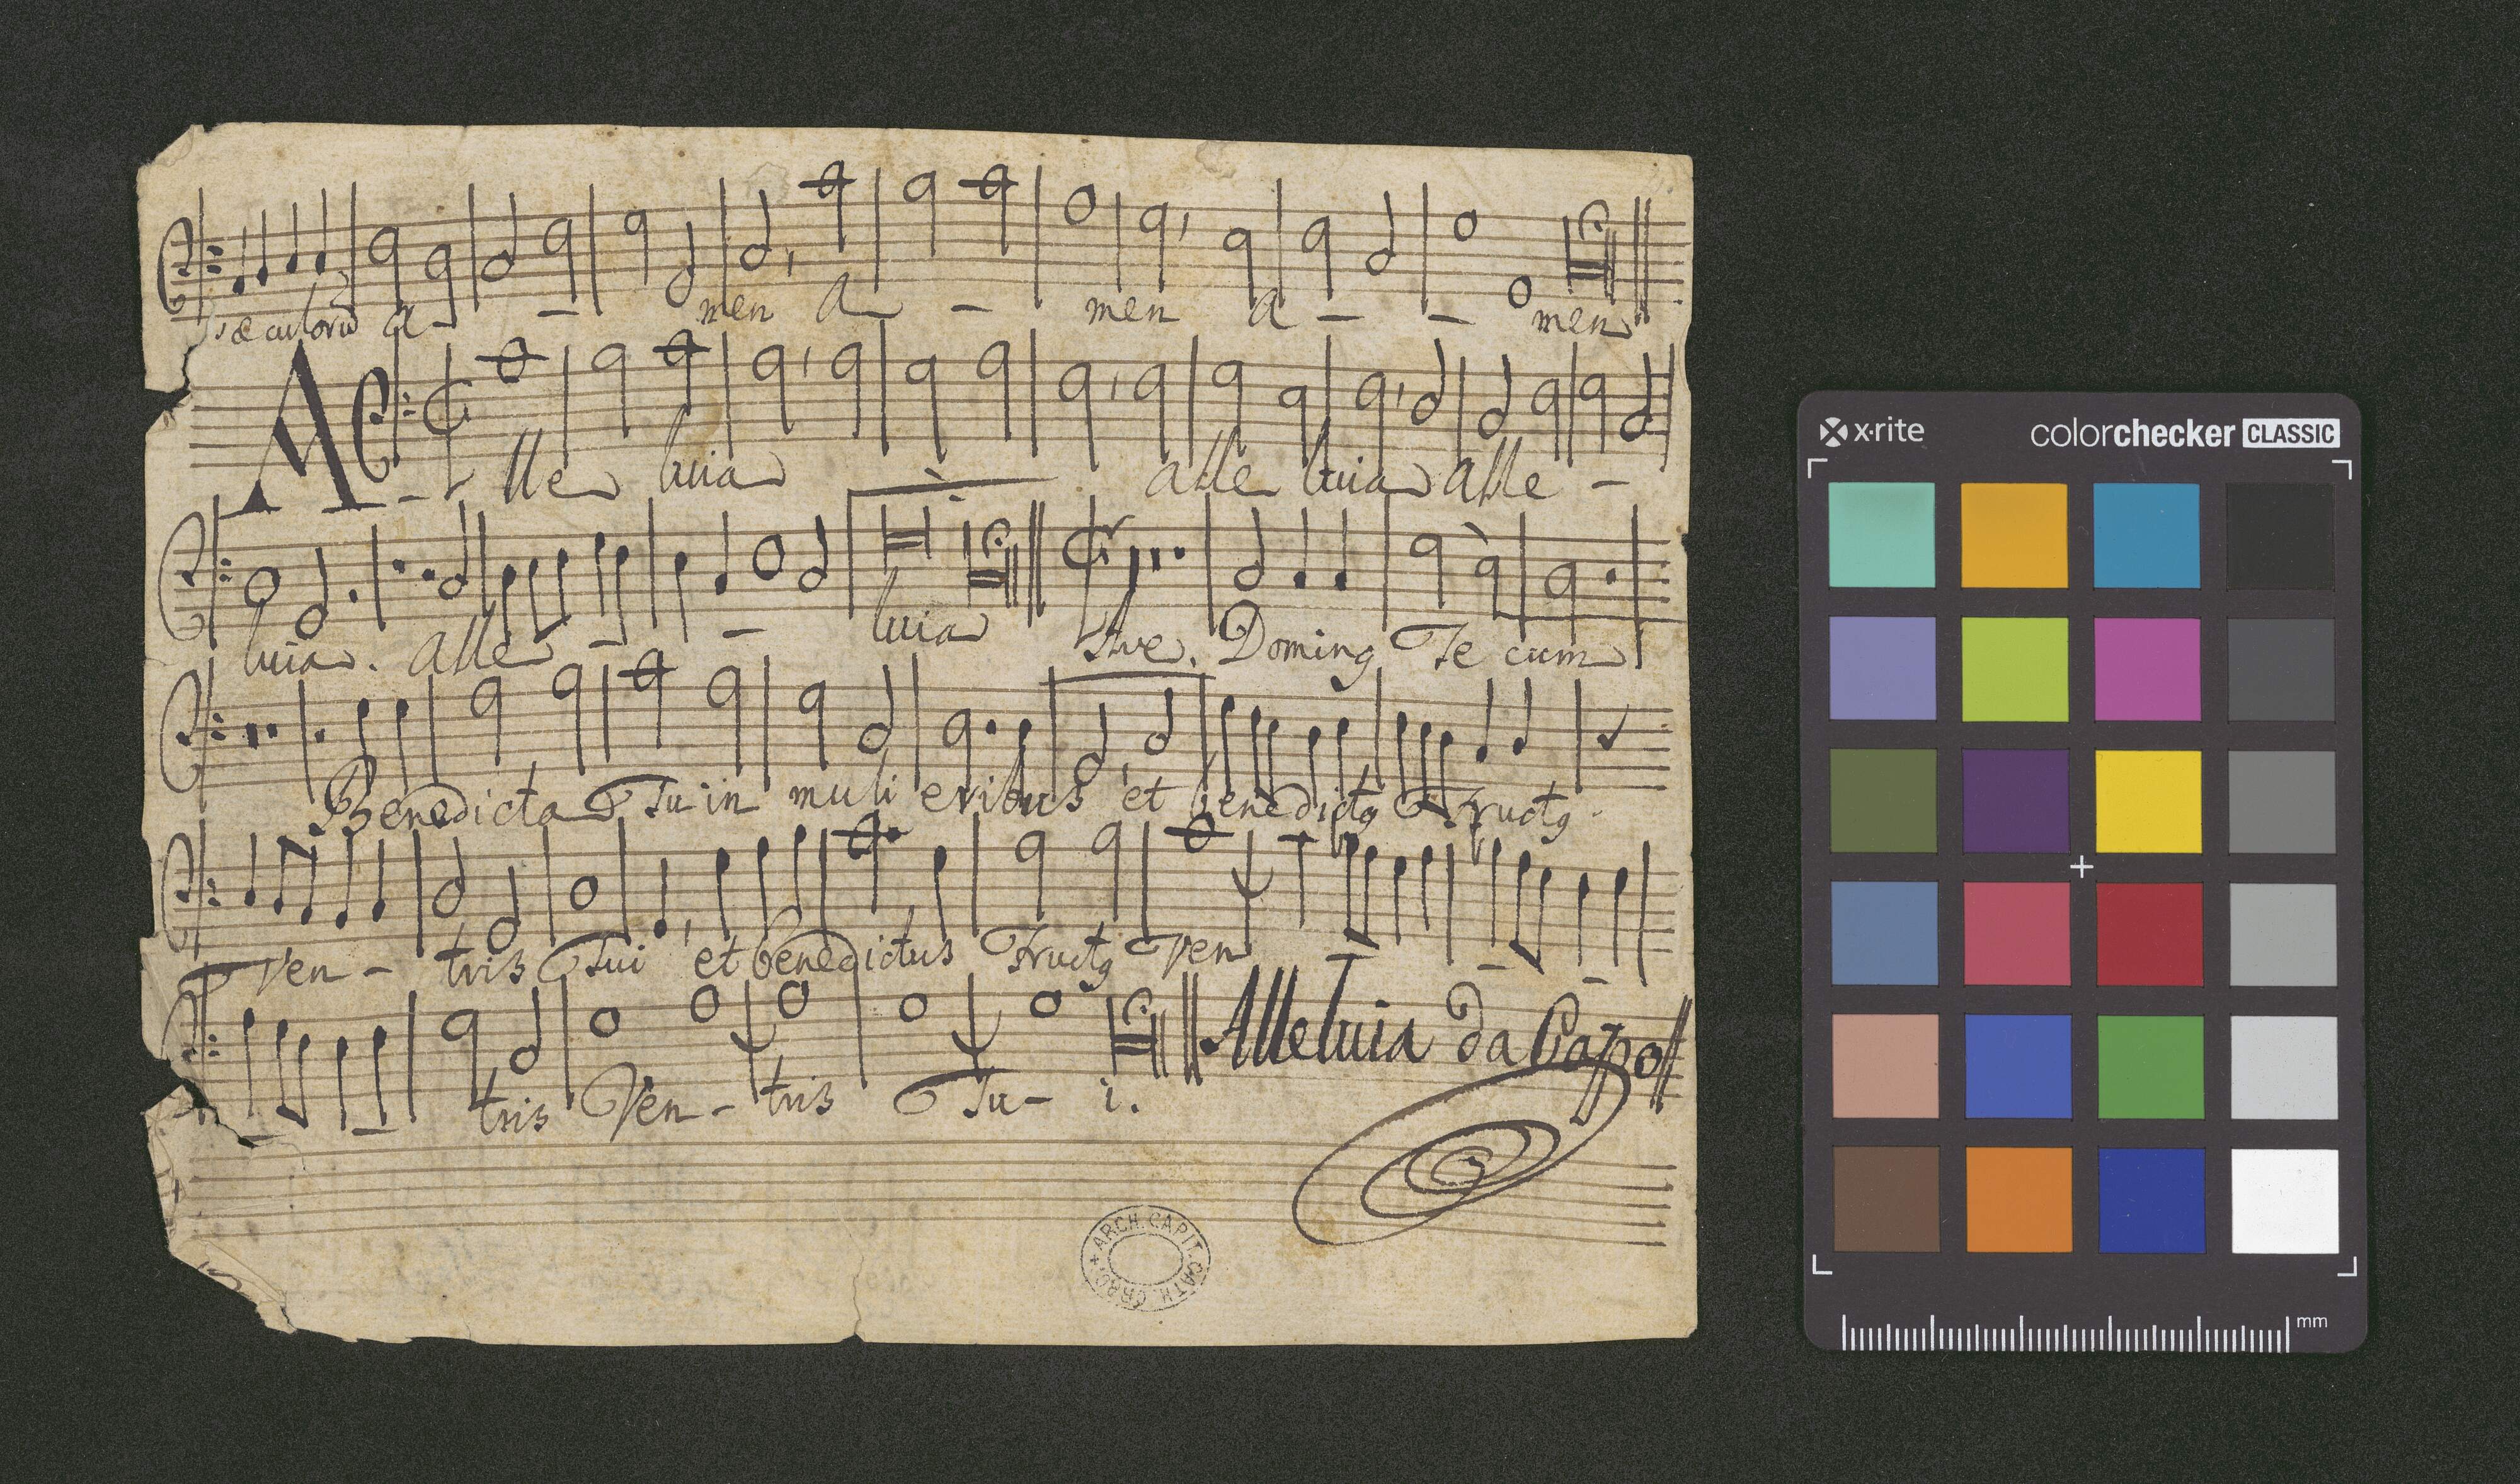 sæculorũ a - - men a - - men a - - men
A - lle luia alle luia alle -
luia. alle - - luia Ave. Dominꝰ Te cum
Benedicta Tu in muli eribus et benedictꝰ Fructꝰ
Ven - tris Tui et benedictus Fructꝰ Ven - - -
- - tris Ven - tris Tu - i. Alleluia da Capo
ARCH. CAPIT. CATH. CRAC.
x·rite colorchecker CLASSIC
mm